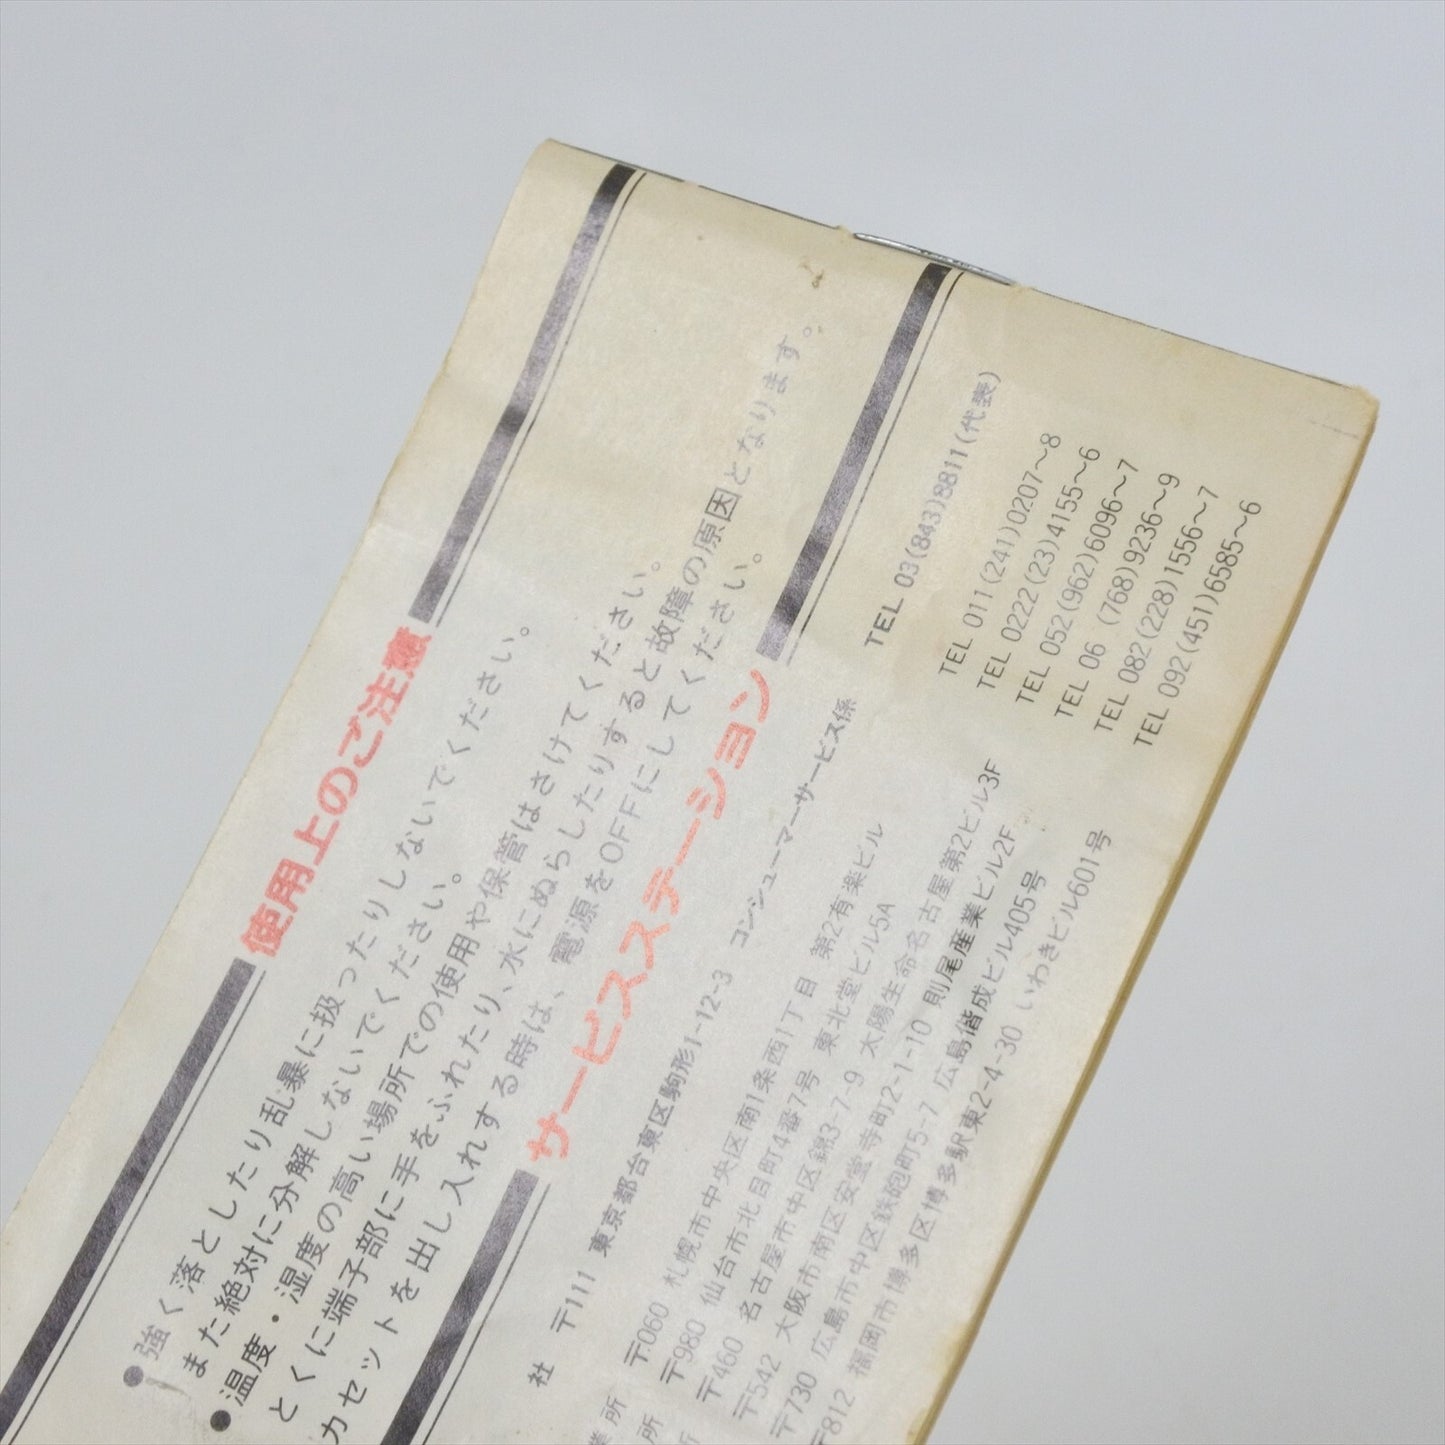 使用上のご注意
●強く落としたり乱暴に扱ったりしないでください。
また絶対に分解しないでください。
●温度・湿度の高い場所での使用や保管はさけてください。
とくに端子部に手をふれたり、水にぬらしたりすると故障の原因となります。
カセットを出し入れする時は、電源をOFFにしてください。
サービスステーション
社 〒111 東京都台東区駒形1-12-3 コンシューマーサービス係 TEL 03(843)8811(代表)
業所 〒060 札幌市中央区南1条西1丁目 第2有楽ビル TEL 011(241)0207〜8
所 〒980 仙台市北目町4番7号 東北堂ビル5A TEL 0222(23)4155〜6
所 〒460 名古屋市中区錦3-7-9 太陽生命名古屋第2ビル3F TEL 052(962)6096〜7
〒542 大阪市南区安堂寺町2-1-10 則尾産業ビル2F TEL 06 (768)9236〜9
〒730 広島市中区鉄砲町5-7 広島偕成ビル405号 TEL 082(228)1556〜7
〒812 福岡市博多区博多駅東2-4-30 いわきビル601号 TEL 092(451)6585〜6